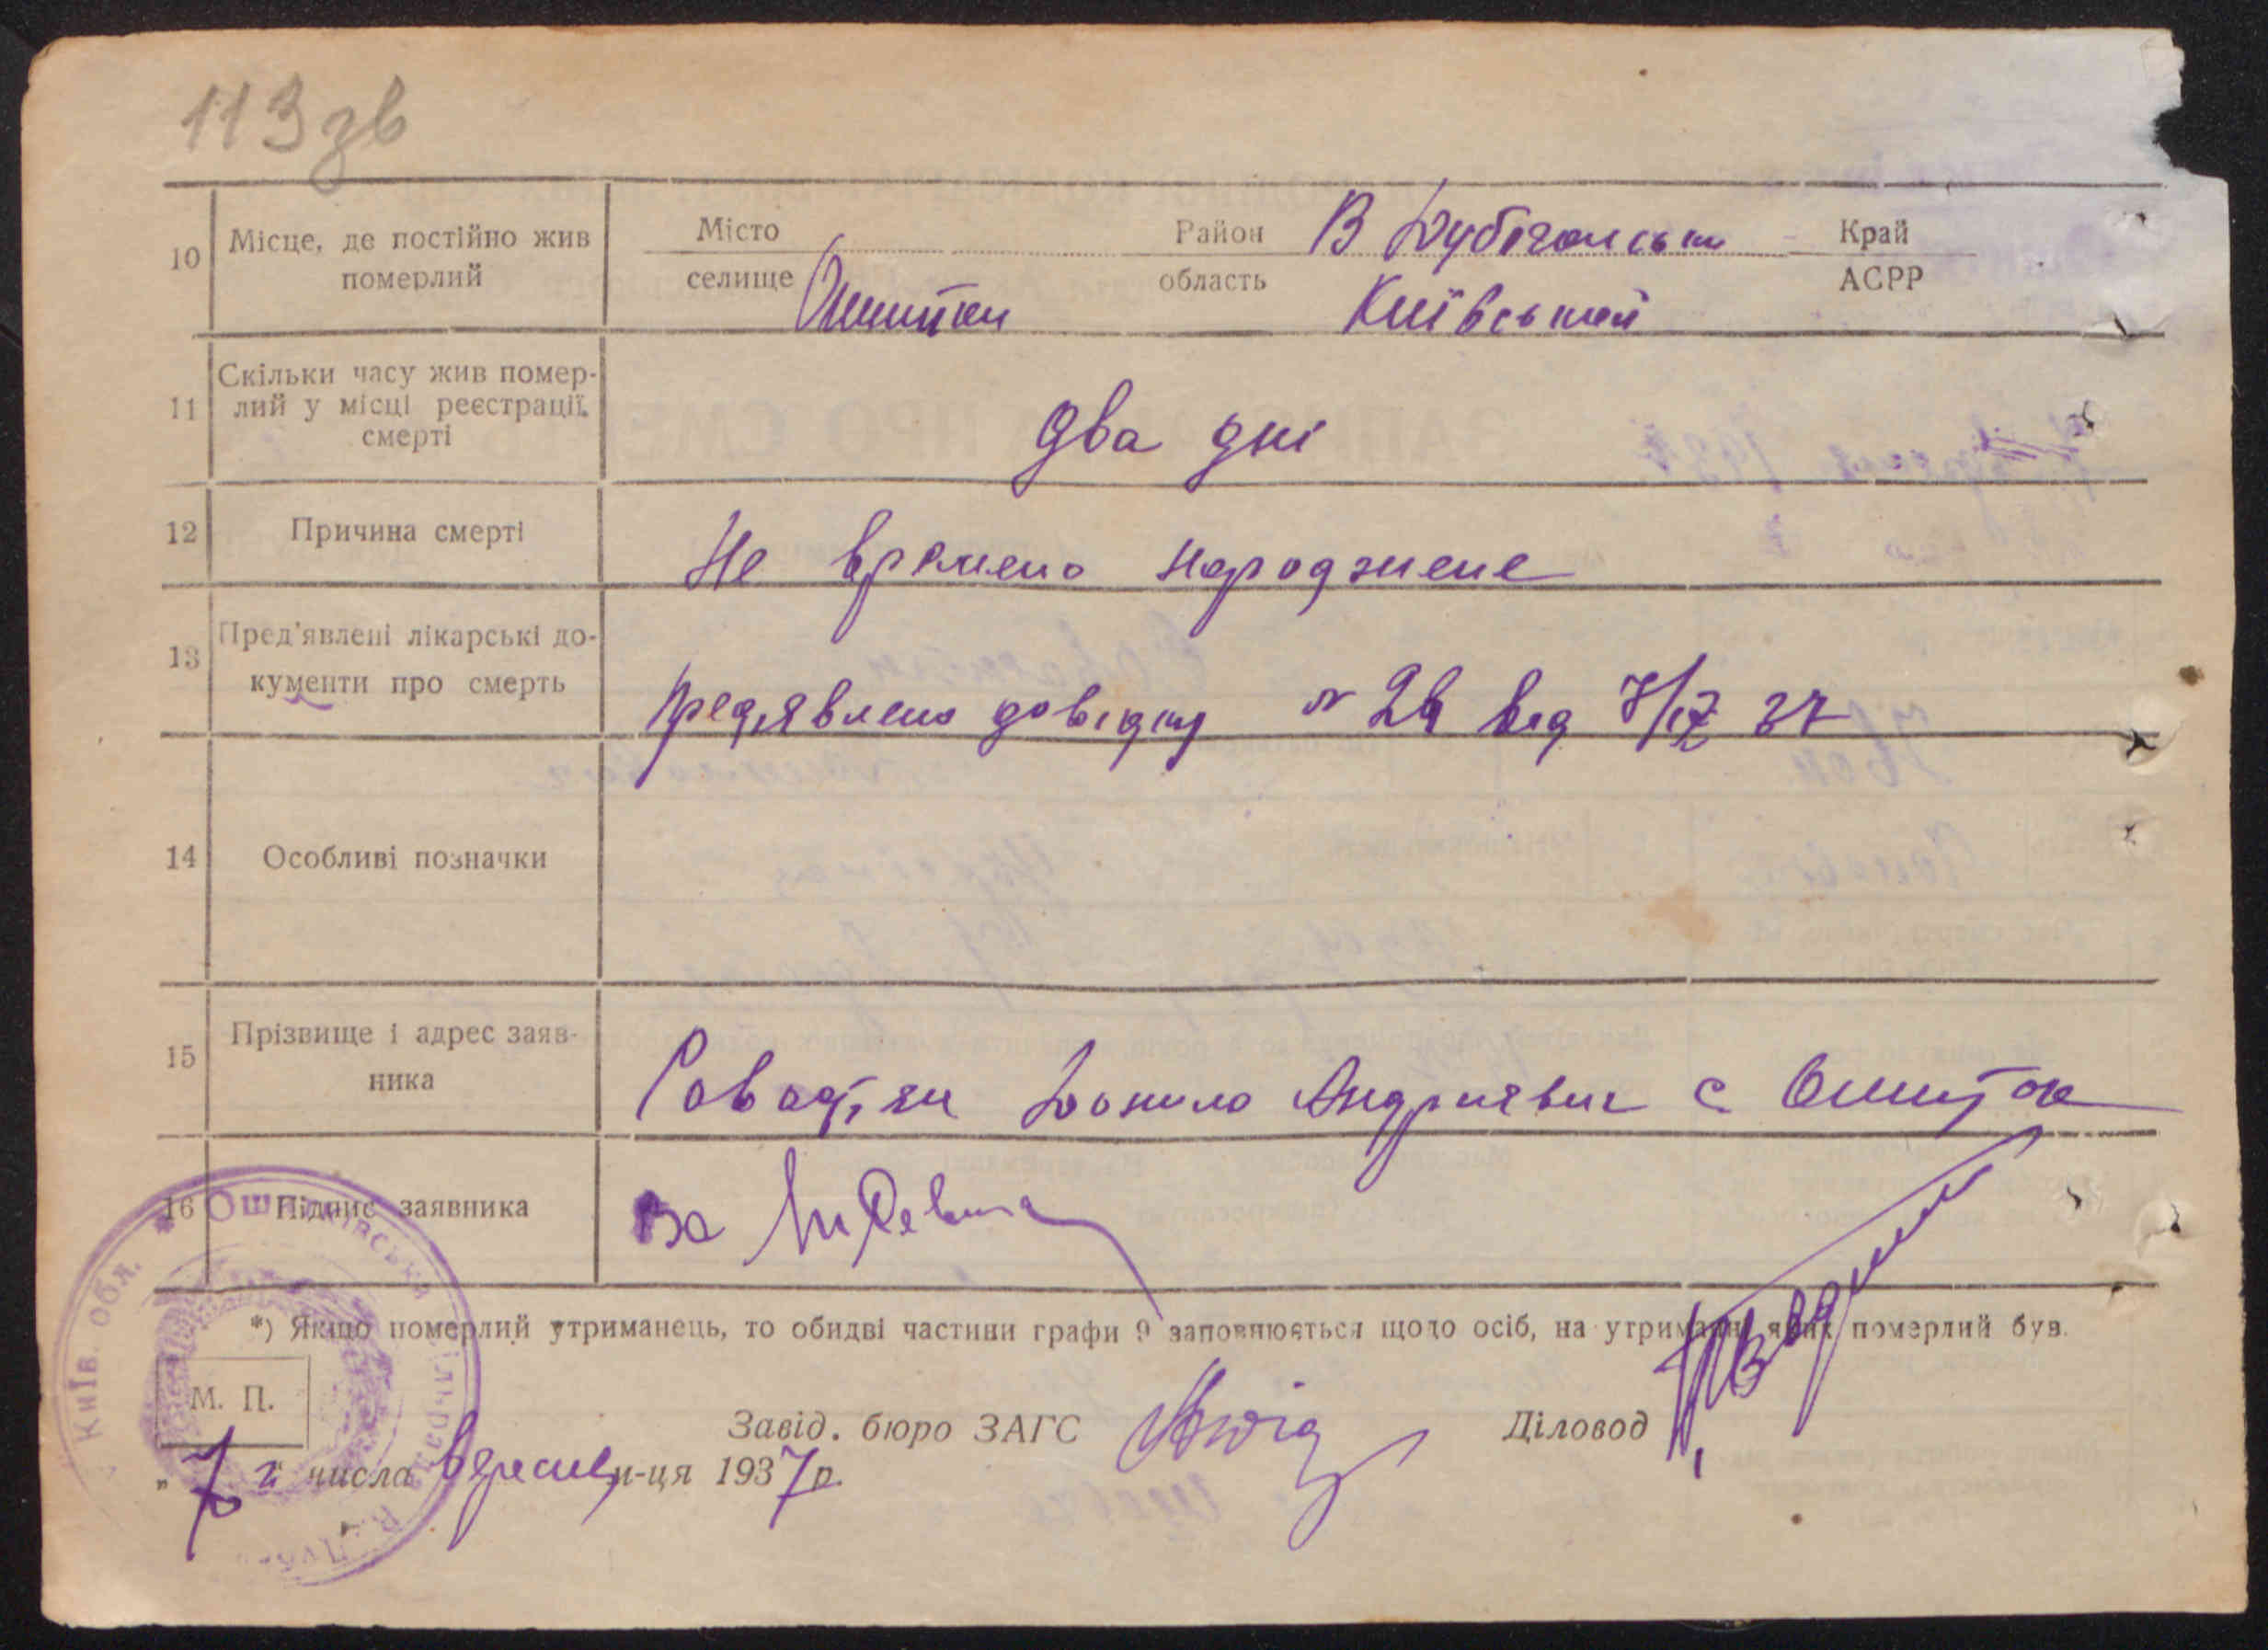 113 зв
10 Місце, де постійно жив померлий
Місто
селище Ошитки
Район В Дубечанськи
область Київський
Край
АСРР
11 Скільки часу жив помер-
лий у місці реєстрації
смерті
два дні
12 Причина смерті
Не времено народжене
13 Пред'явлені лікарські до-
кументи про смерть
предявлено довідку № 24 від 7/IX 37
14 Особливі позначки
15 Прізвище і адрес заяв-
ника
Андриевич с Ошиток
16 Підпис заявника
За
*) Якщо померлий утриманець, то обидві частини графи 9 заповнюється щодо осіб, на утриманні яких померлий був.
М. П.
Завід. бюро ЗАГС
Діловод
„ 7 " числа вересня м-ця 1937 р.
Київ. обл. * Ошитківська сільрада